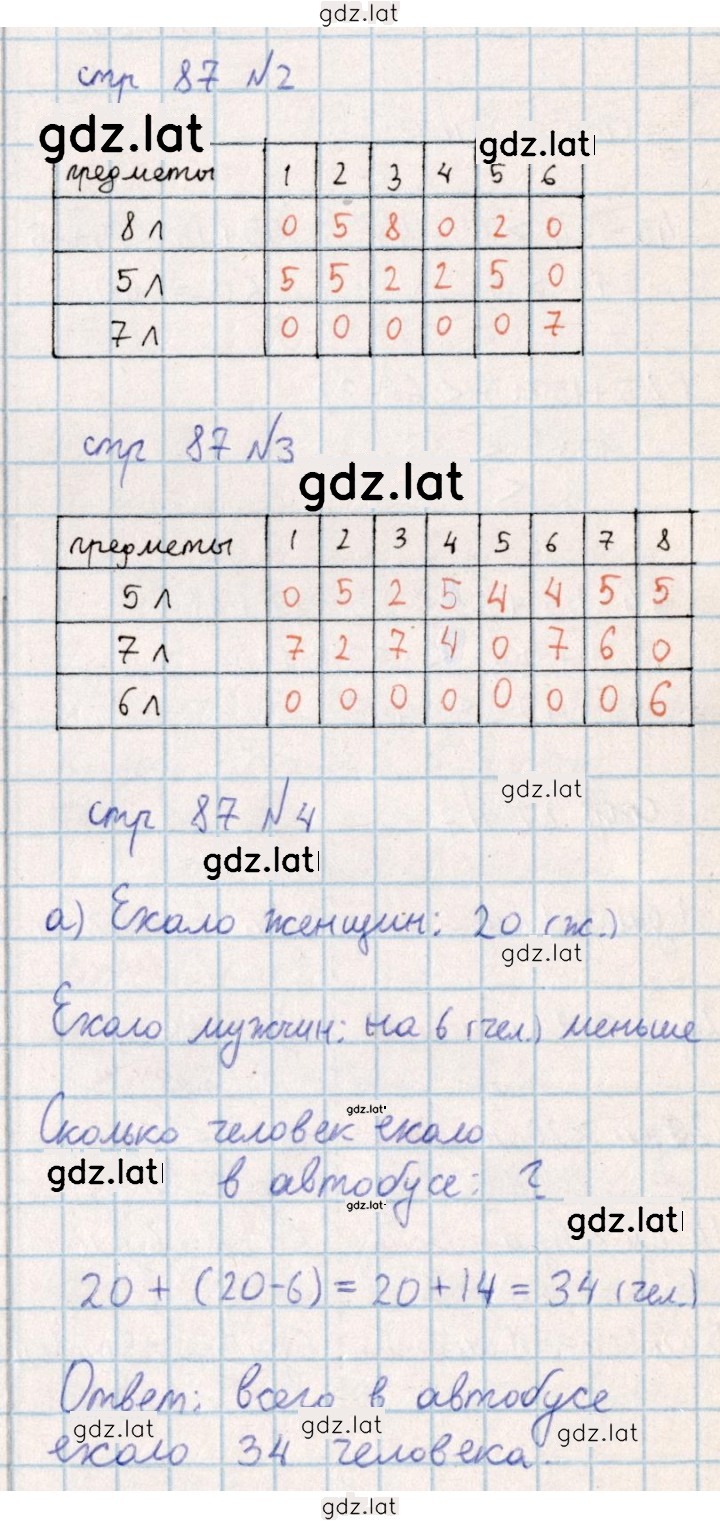 gdz.lat
стр 87 №2
gdz.lat gdz.lat
предметы 1 2 3 4 5 6
8 л 0 5 8 0 2 0
5 л 5 5 2 2 5 0
7 л 0 0 0 0 0 7
стр 87 №3
gdz.lat
предметы 1 2 3 4 5 6 7 8
5 л 0 5 2 5 4 4 5 5
7 л 7 2 7 4 0 7 6 0
6 л 0 0 0 0 0 0 0 6
gdz.lat
стр 87 №4
gdz.lat
а) Ехало женщин: 20 (ж.)
gdz.lat
Ехало мужчин: на 6 (чел.) меньше
gdz.lat
Сколько человек ехало
gdz.lat
в автобусе: ?
gdz.lat
gdz.lat
20 + (20-6) = 20+14 = 34 (чел.)
Ответ: всего в автобусе
gdz.lat gdz.lat gdz.lat
ехало 34 человека.
gdz.lat